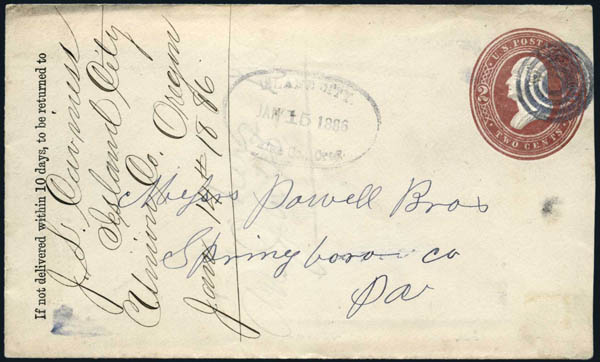 If not delivered within 10 days, to be returned to
J. S. Caviness
Island City
Union Co. Oregon
Jan 14th 1886.
ISLAND CITY.
JAN 15 1886
Union Co., Oreg.
U.S. POSTAGE
2
TWO CENTS
Meyers Powell Bros
Springboro co
Pa